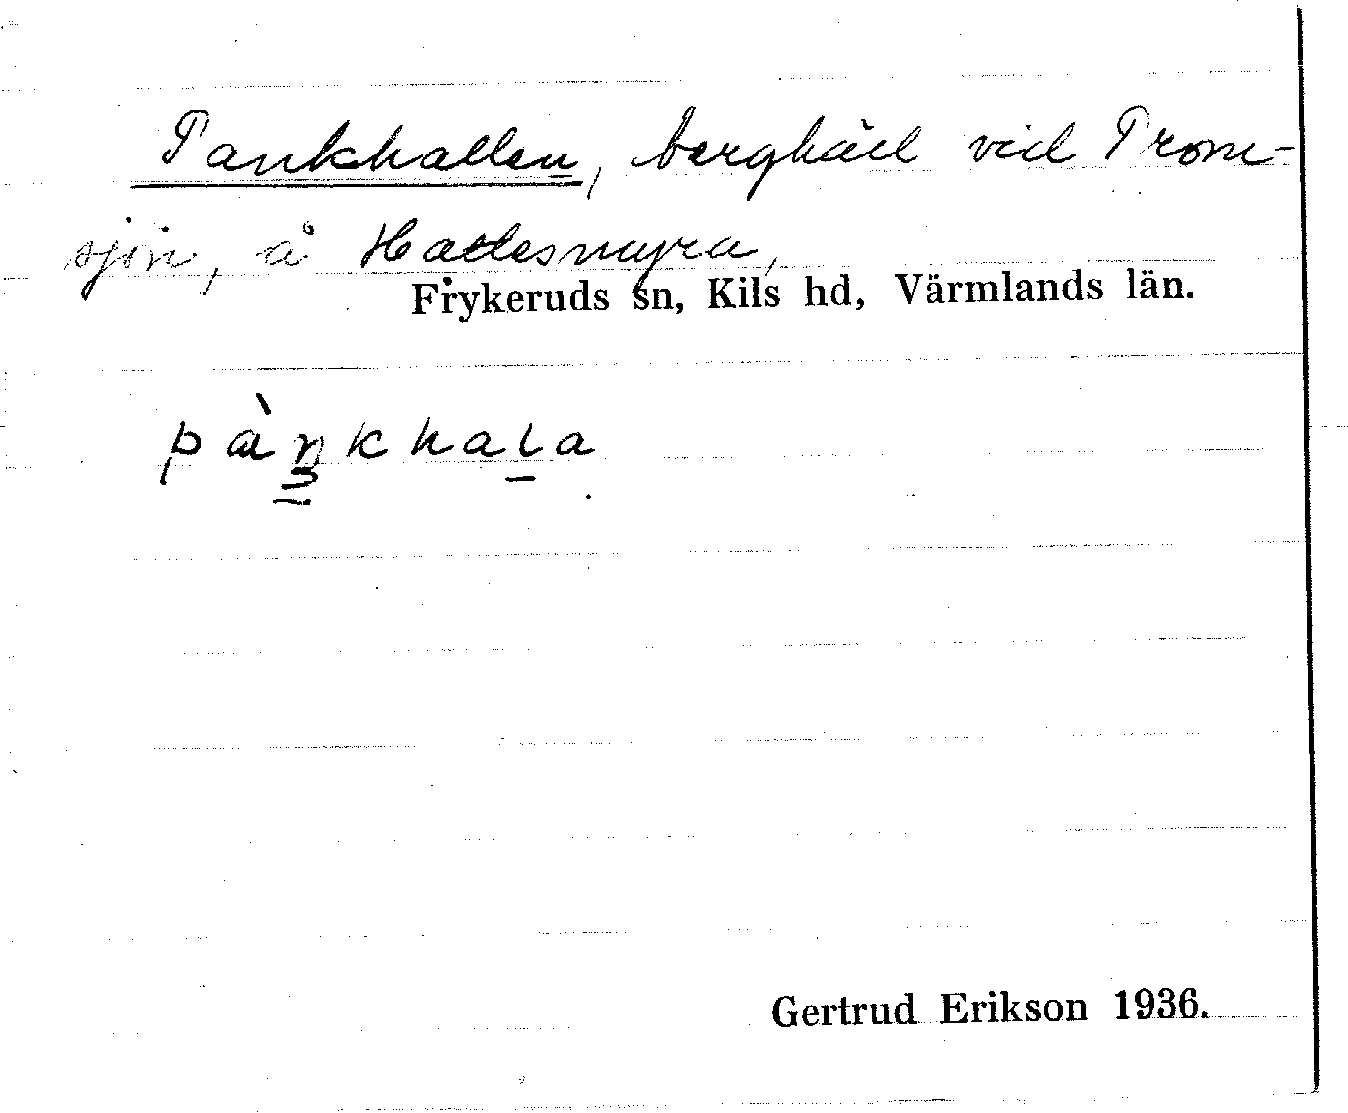 Pankhallen, berghäll vid Prom-
sjön, å Hattesmyra,
Frykeruds sn, Kils hd, Värmlands län.
pàŋkhala
Gertrud Erikson 1936.